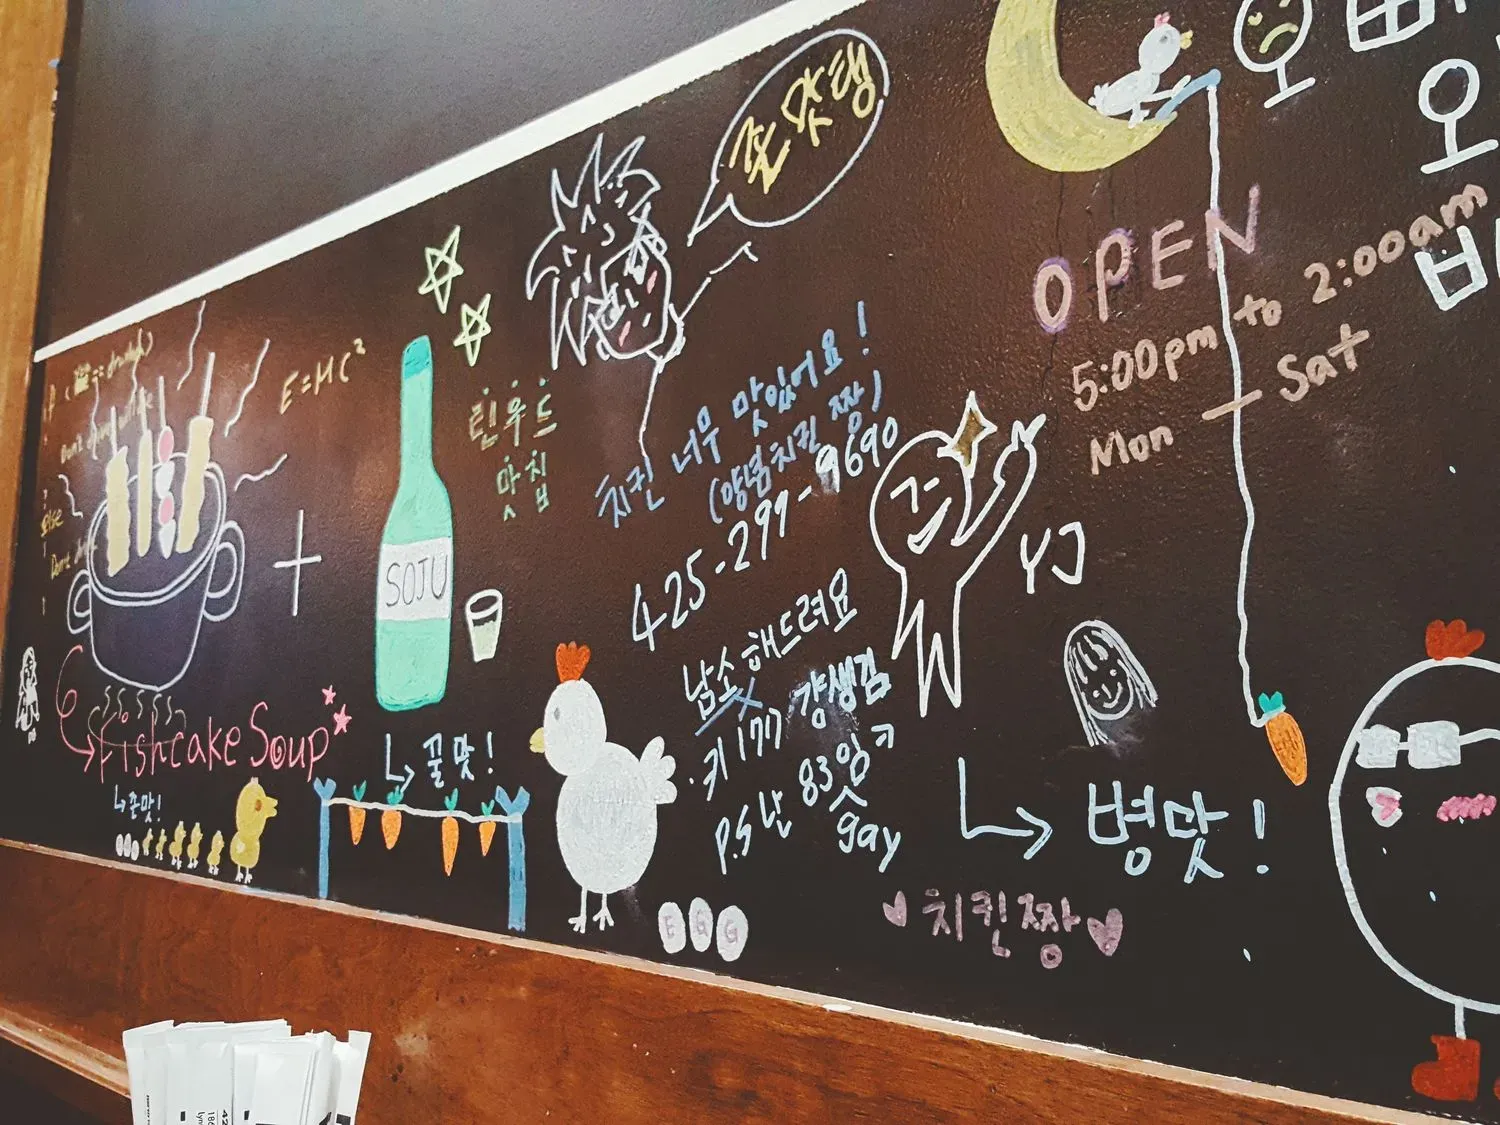 존맛탱
OPEN
5:00pm to 2:00am
Mon - Sat
E=MC²
린우드
맛집
치킨 너무 맛있어요!
(양념치킨 짱)
425-299-9690
SOJU
YJ
남소해드려요
키 177 걍생김
P.S 난 83임ㅋ
gay
Fishcake Soup
존맛!
꿀맛!
병맛!
치킨짱
EGG
오